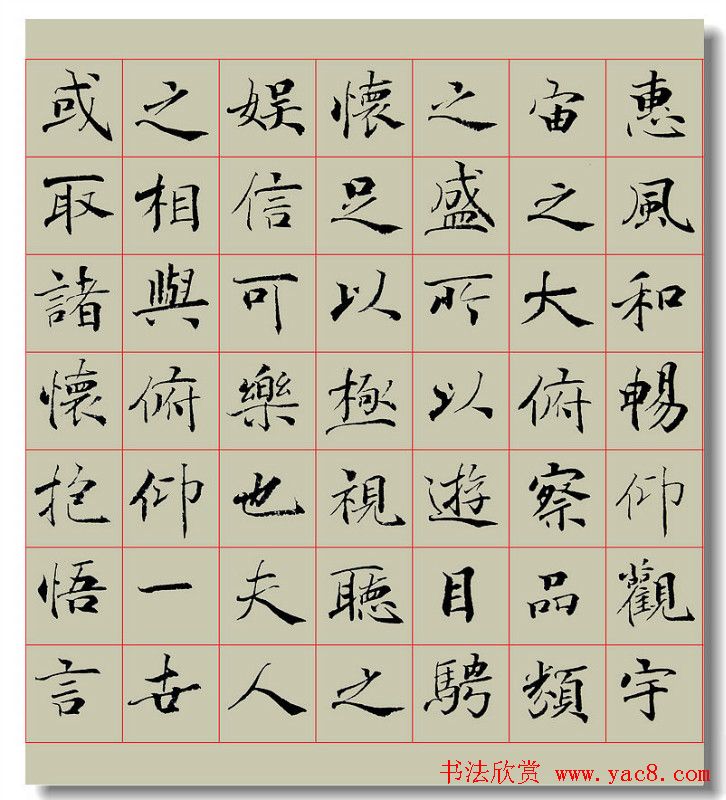 惠風和暢仰觀宇
宙之大俯察品類
之盛所以遊目騁
懷足以極視聽之
娛信可樂也夫人
之相與俯仰一世
或取諸懷抱悟言
书法欣赏 www.yac8.com